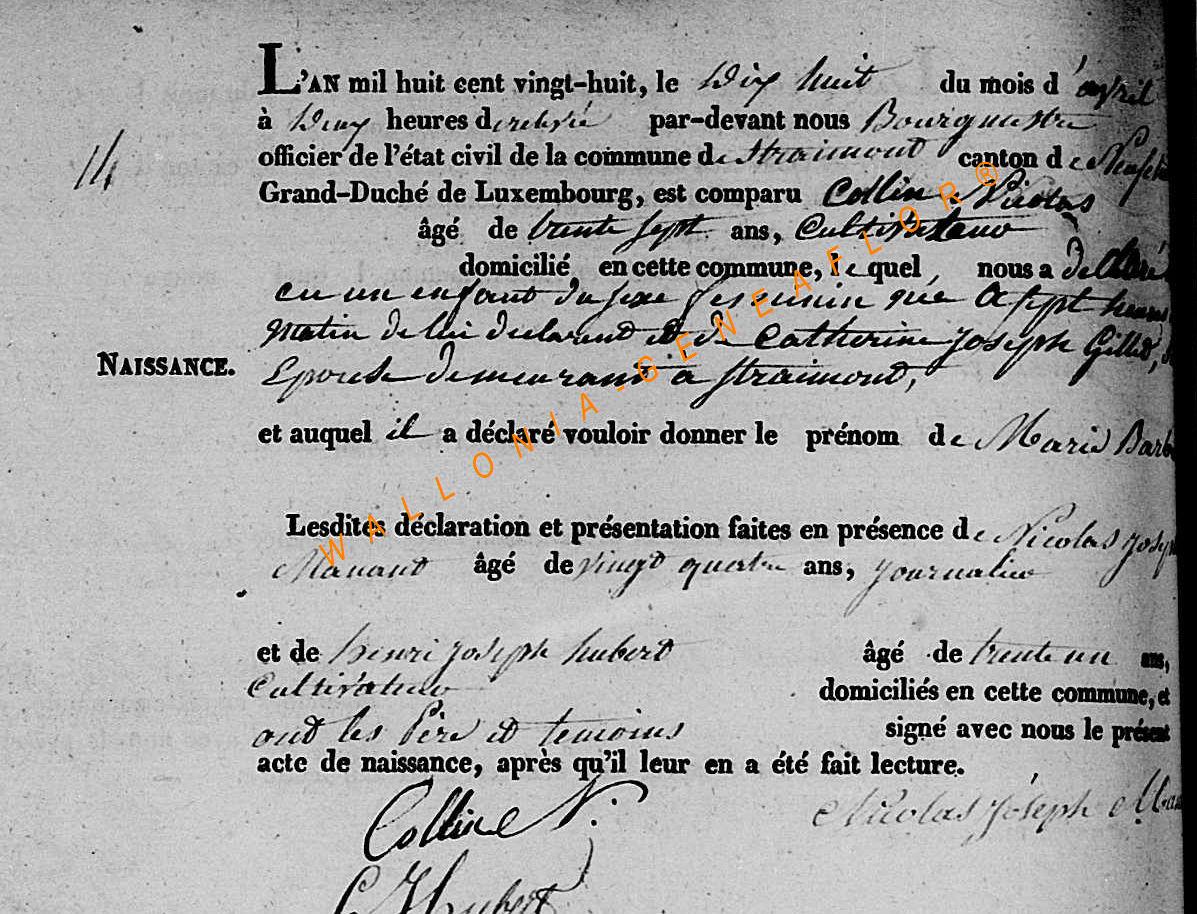 L'AN mil huit cent vingt-huit, le Dix huit du mois d'avril
à Deux heures de relevée par-devant nous Bourgmestre
officier de l'état civil de la commune de Straimont canton de
14
Grand-Duché de Luxembourg, est comparu Collin Nicolas
âgé de trente sept ans, Cultivateur
domicilié en cette commune, lequel, nous a déclaré
un enfant du sexe feminin née a sept heures
matin de lui declarant et de Catherine Joseph Gillet,
NAISSANCE.
Epouse demeurant a Straimont,
et auquel il a déclaré vouloir donner le prénom de Marie Barbe
Lesdites déclaration et présentation faites en présence de Nicolas Joseph
Manand âgé de vingt quatre ans, journalier
et de henri joseph hubert âgé de trente un ans,
Cultivateur domiciliés en cette commune, et
ont les Père et temoins signé avec nous le présent
acte de naissance, après qu'il leur en a été fait lecture.
Collin N.
Nicolas Joseph
Hubert
WALLONIA-GENEAFLOR®